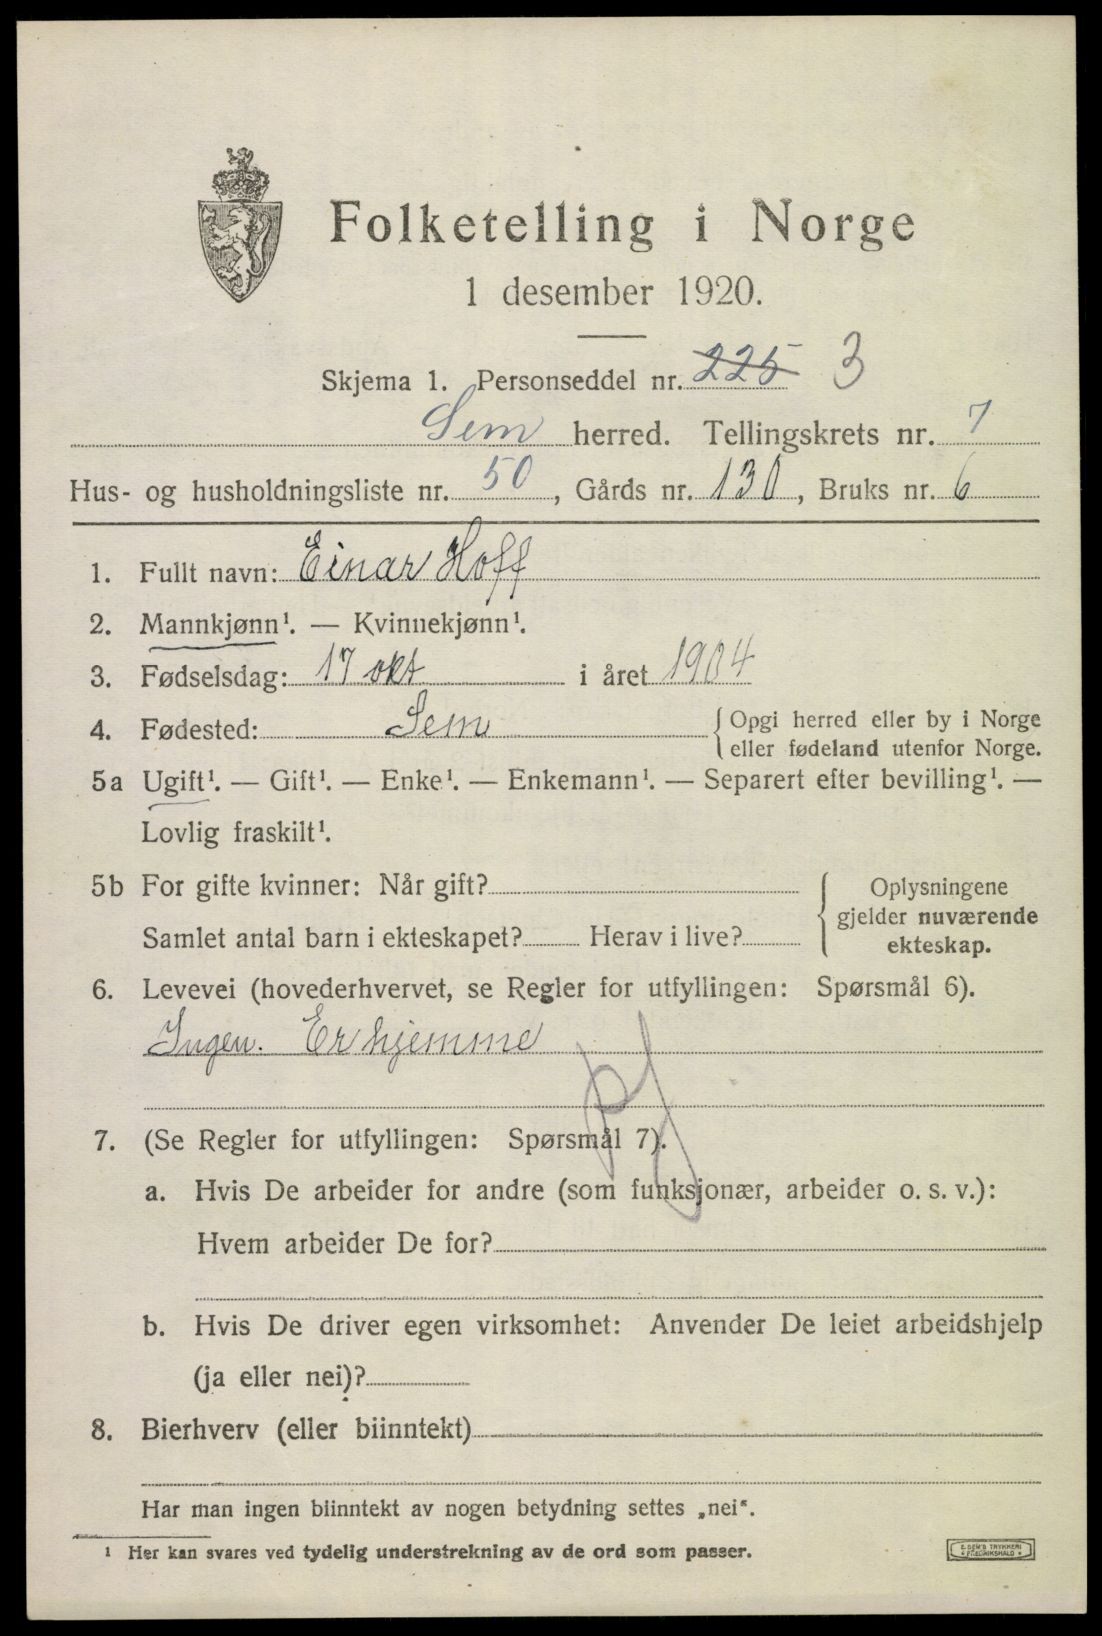 Folketelling i Norge
1 desember 1920.
Skjema 1. Personseddel nr. 225 3
Sem herred. Tellingskrets nr. 7
Hus- og husholdningsliste nr. 50, Gårds nr. 130, Bruks nr. 6
1. Fullt navn: Einar Hoff
2. Mannkjønn¹. — Kvinnekjønn¹.
3. Fødselsdag: 17 okt i året 1904
4. Fødested: Sem { Opgi herred eller by i Norge
eller fødeland utenfor Norge.
5a Ugift¹. — Gift¹. — Enke¹. — Enkemann¹. — Separert efter bevilling¹. —
Lovlig fraskilt¹.
5b For gifte kvinner: Når gift?
Samlet antal barn i ekteskapet? Herav i live?
Oplysningene
gjelder nuværende
ekteskap.
6. Levevei (hovederhvervet, se Regler for utfyllingen: Spørsmål 6).
Ingen. Er hjemme
7. (Se Regler for utfyllingen: Spørsmål 7).
a. Hvis De arbeider for andre (som funksjonær, arbeider o. s. v.):
Hvem arbeider De for?
b. Hvis De driver egen virksomhet: Anvender De leiet arbeidshjelp
(ja eller nei)?
8. Bierhverv (eller biinntekt)
Har man ingen biinntekt av nogen betydning settes „nei".
¹ Her kan svares ved tydelig understrekning av de ord som passer.
E. SEM'S TRYKKERI
FREDRIKSHALD